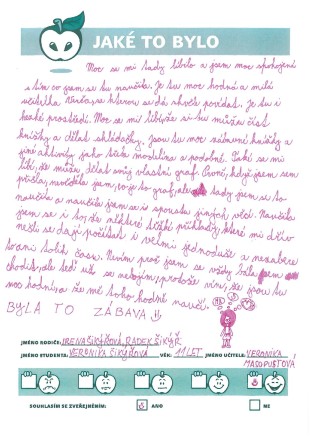 JAKÉ TO BYLO
Moc se mi tady líbilo a jsem moc spokojená
s tím co jsem se tu naučila. Je tu moc hodná a milá
učitelka Verča, se kterou se dá skvěle povídat. Je tu i
hezké prostředí. Moc se mi líbí, že si tu můžu číst
knížky a dělat skládačky. Jsou tu moc zábavné knížky a
jiné aktivity jako třeba modelína a podobně. Také se mi
líbí, že můžu dělat svůj vlastní graf. První, když jsem sem
přišla, nevěděla jsem, co je to graf, ale tady jsem se to
naučila a naučila jsem se i spoustu jiných věcí. Naučila
jsem se i to, že některé těžké příklady, které mi dřív
nešli se dají počítat i velmi jednoduše a nezabere
to ani tolik času. Nevím proč jsem se vždy bála sem
chodit, ale teď už se nebojím, protože vím, že jsou tu
moc hodní a že mě toho hodně naučí.
BYLA TO ZÁBAVA !!
JMÉNO RODIČE: IRENA ŠIKÝŘOVÁ, RADEK ŠIKÝŘ
JMÉNO STUDENTA: VERONIKA ŠIKÝŘOVÁ VĚK: 11 LET JMÉNO UČITELE: VERONIKA
MASOPUSTOVÁ
SOUHLASÍM SE ZVEŘEJNĚNÍM: ANO NE